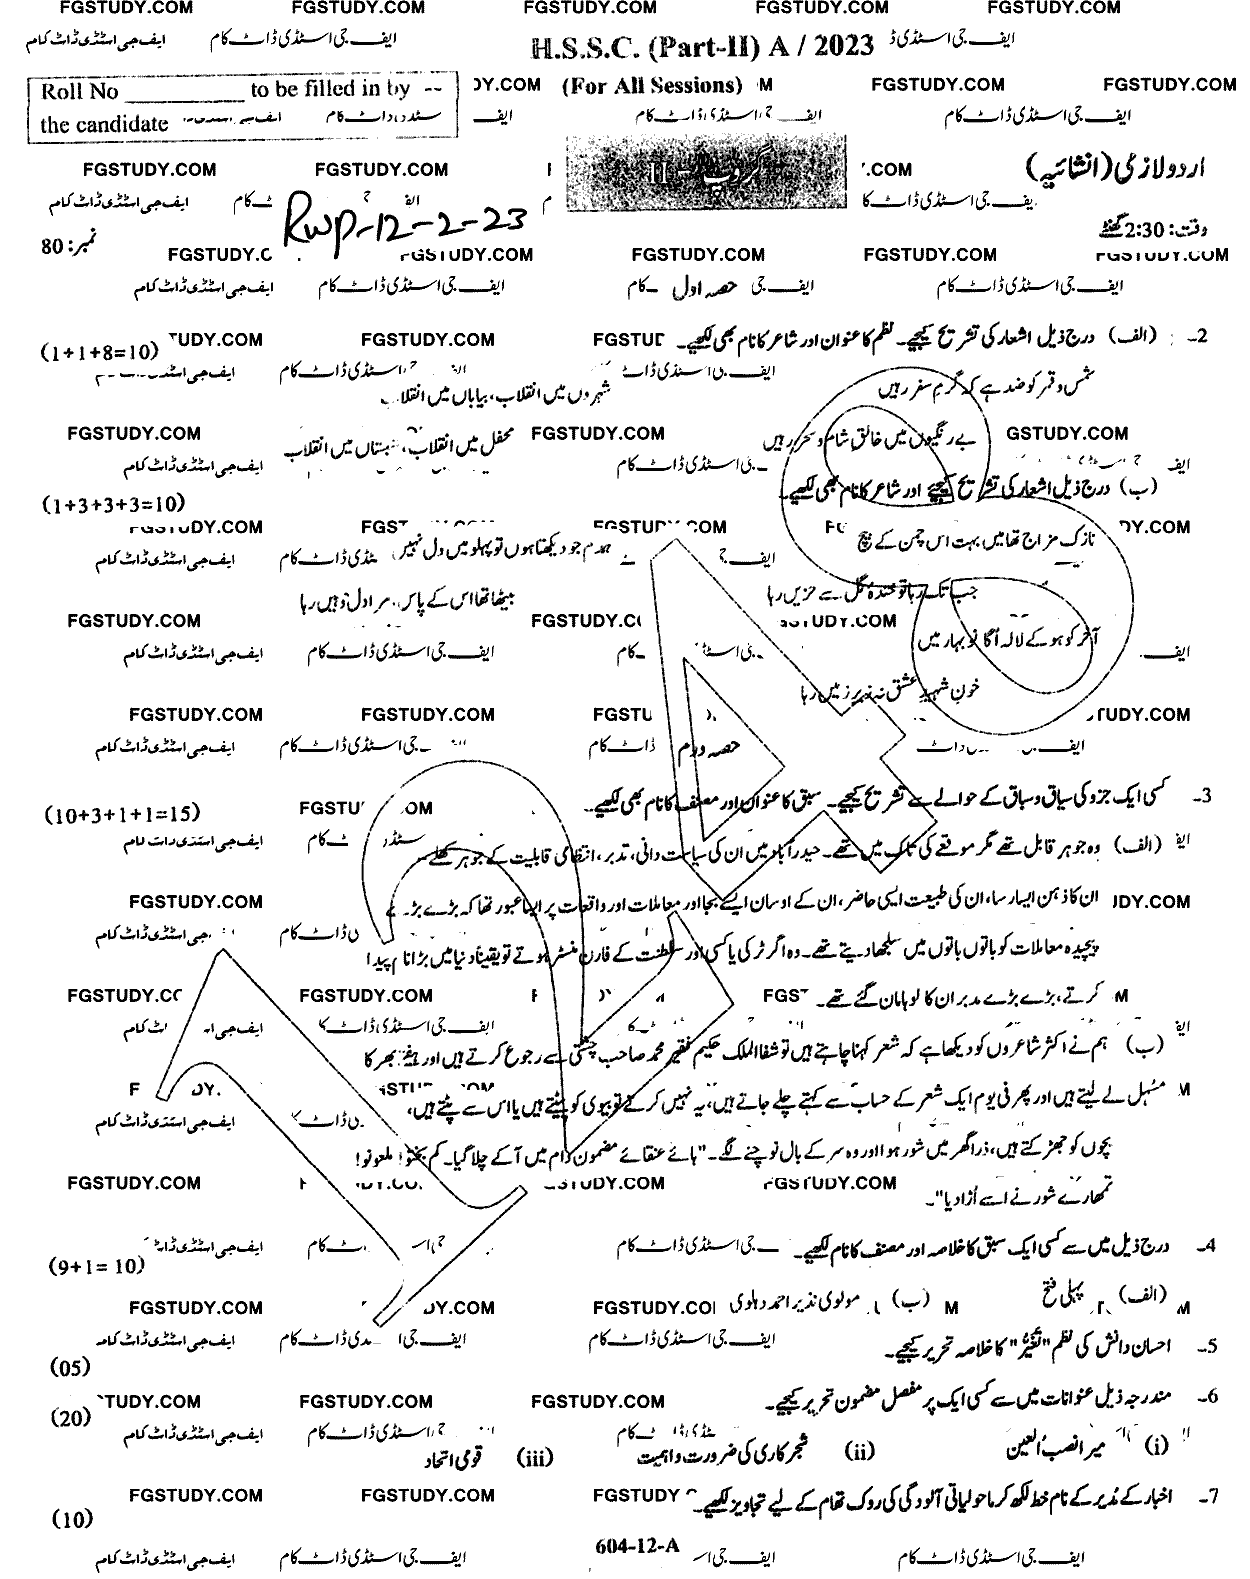 FGSTUDY.COM FGSTUDY.COM FGSTUDY.COM FGSTUDY.COM FGSTUDY.COM
ایف جی اسٹڈی ڈاٹ کام ایف جی اسٹڈی ڈاٹ کام H.S.S.C. (Part-II) A / 2023 ایف جی اسٹڈی ڈ
Roll No __________ to be filled in by -- (For All Sessions) FGSTUDY.COM FGSTUDY.COM
the candidate
FGSTUDY.COM FGSTUDY.COM گروپ - II اردو لازمی (انشائیہ)
Rwp-12-2-23
وقت: 2:30 گھنٹے نمبر: 80
حصہ اول
2- (الف) درج ذیل اشعار کی تشریح کیجیے۔ نظم کا عنوان اور شاعر کا نام بھی لکھیے۔ (1+1+8=10)
شمس و قمر کو ضد ہے کہ گرمِ سفر رہیں شہروں میں انقلاب، بیاباں میں انقلاب
بے رنگیوں میں خالقِ شام و سحر رہیں محفل میں انقلاب، شبستاں میں انقلاب
(ب) درج ذیل اشعار کی تشریح کیجیے اور شاعر کا نام بھی لکھیے۔ (1+3+3+3=10)
نازک مزاج تھا میں بہت اس چمن کے بیچ ہمدم جو دیکھتا ہوں تو پہلو میں دل نہیں
جب تک رہا تو خندۂ گل سے حزیں رہا بیٹھا تھا اس کے پاس، مرا دل وہیں رہا
آخر کو ہو کے لالہ اُگا نو بہار میں
خونِ شہیدِ عشق نہ زیرِ زمیں رہا
حصہ دوم
3- کسی ایک جزو کی سیاق و سباق کے حوالے سے تشریح کیجیے۔ سبق کا عنوان اور مصنف کا نام بھی لکھیے۔ (10+3+1+1=15)
(الف) وہ جوہر قابل تھے مگر موقعے کی تاک میں تھے۔ حیدرآباد میں ان کی سیاست دانی، تدبر، انتظامی قابلیت کے جوہر کھلے
ان کا ذہن ایسا رسا، ان کی طبیعت ایسی حاضر، ان کے اوسان ایسے بجا اور معاملات اور واقعات پر ایسا عبور تھا کہ بڑے بڑے
پیچیدہ معاملات کو باتوں باتوں میں سلجھا دیتے تھے۔ وہ اگر ٹرکی یا کسی اور سلطنت کے فارن منسٹر ہوتے تو یقیناً دنیا میں بڑا نام پیدا
کرتے، بڑے بڑے مدبر ان کا لوہا مان گئے تھے۔
(ب) ہم نے اکثر شاعروں کو دیکھا ہے کہ شعر کہنا چاہتے ہیں تو شفاالملک حکیم فقیر محمد صاحب چشتی سے رجوع کرتے ہیں اور ہفتے بھر کا
مسہل لے لیتے ہیں اور پھر فی یوم ایک شعر کے حساب سے کہتے چلے جاتے ہیں، یہ نہیں کرتے تو بیوی کو پیٹتے ہیں یا اس سے پٹتے ہیں،
بچوں کو جھڑکتے ہیں، ذرا گھر میں شور ہوا اور وہ سر کے بال نوچنے لگے۔ "ہائے عنقائے مضمون دام میں آ کے چلا گیا۔ کم بختو! ملعونو!
تمھارے شور نے اسے اُڑا دیا"۔
4- درج ذیل میں سے کسی ایک سبق کا خلاصہ اور مصنف کا نام لکھیے۔ (9+1= 10)
(الف) پہلی فتح (ب) مولوی نذیر احمد دہلوی
5- احسان دانش کی نظم "تَغَیُّر" کا خلاصہ تحریر کیجیے۔ (05)
6- مندرجہ ذیل عنوانات میں سے کسی ایک پر مفصل مضمون تحریر کیجیے۔ (20)
(i) میرا نصبُ العین (ii) شجر کاری کی ضرورت و اہمیت (iii) قومی اتحاد
7- اخبار کے مُدیر کے نام خط لکھ کر ماحولیاتی آلودگی کی روک تھام کے لیے تجاویز لکھیے۔ (10)
604-12-A
ایف جی اسٹڈی ڈاٹ کام ایف جی اسٹڈی ڈاٹ کام